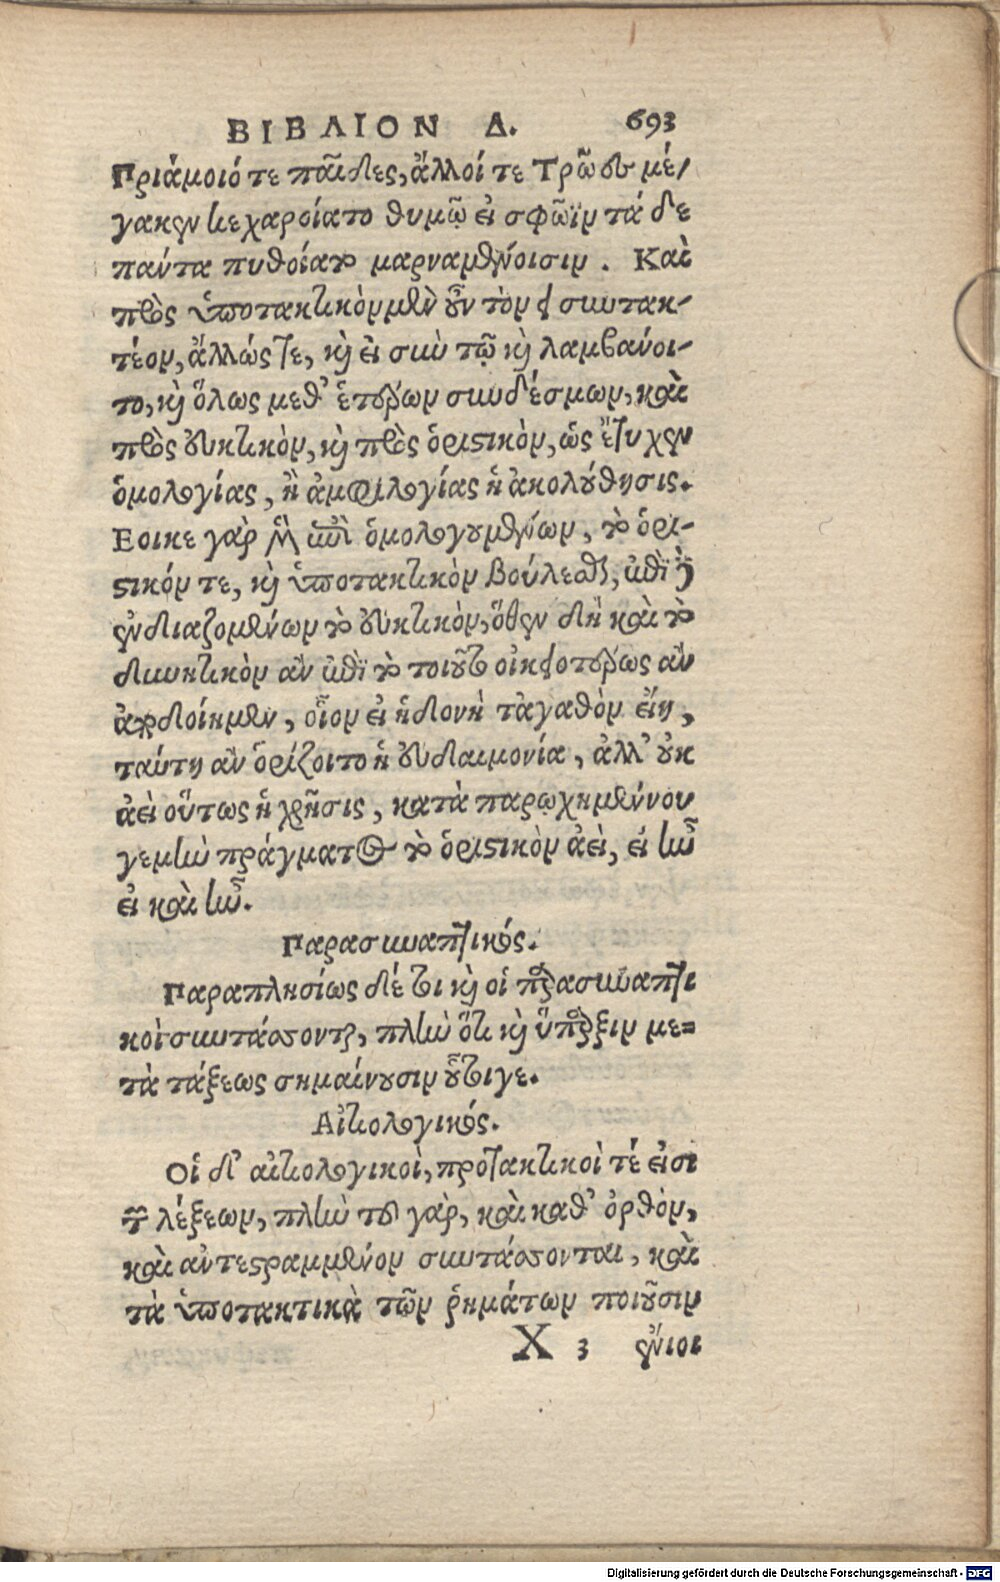 ΒΙΒΛΙΟΝ Δ. 693
Πριάμοιό τε παῖδες, ἄλλοί τε Τρῶες μέ-
γα κεν κεχαροίατο θυμῷ εἰ σφῶϊν τά δε
πάντα πυθοίατο μαρναμένοισιν. Καὶ
πρὸς ὑποτακτικὸν μὲν οὖν τὸν συντακ-
τέον, ἄλλώς τε, κὶ εἰ σὺν τῷ κὶ λαμβάνοι-
το, κὶ ὅλως μεθ' ἑτέρων συνδέσμων, καὶ
πρὸς εὐκτικὸν, κὶ πρὸς ὁριστικὸν, ὡς ἔτυχεν
ὁμολογίας, ἢ ἀμφιλογίας ἡ ἀκολούθησις.
Εοικε γὰρ ἐπὶ ὁμολογουμένων, τὸ ὁρι-
στικόν τε, κὶ ὑποτακτικὸν βούλεσθαι, ἐπὶ δὲ
ἐνδιαζομένων τὸ εὐκτικὸν, ὅθεν δὴ καὶ τὸ
δυνητικὸν ἂν ἐπὶ τὸ τοιοῦτο οἰκειοτέρως ἂν
ἀποδοίημεν, οἷον εἰ ἡδονὴ τἀγαθὸν εἴη,
ταύτη ἂν ὁρίζοιτο ἡ εὐδαιμονία, ἀλλ' οὐκ
ἀεὶ οὕτως ἡ χρῆσις, κατὰ παρῳχημένου
γεμὴν πράγματος τὸ ὁριστικὸν ἀεὶ, εἰ ἦν
εἰ καὶ ἦν.
Παρασυναπτικός.
Παραπλησίως δέ τι κὶ οἱ παρασυναπτι
κοὶ συντάσσονται, πλὴν ὅτι κὶ ὕπαρξιν με-
τὰ τάξεως σημαίνουσιν οὗτιγε.
Αἰτιολογικός.
Οἱ δ' αἰτιολογικοὶ, προτακτικοὶ τέ εἰσι
τῶν λέξεων, πλὴν τοῦ γὰρ, καὶ καθ' ὀρθὸν,
καὶ ἀντεστραμμένον συντάσσονται, καὶ
τὰ ὑποτακτικὰ τῶν ῥημάτων ποιοῦσιν
X 3 ἔνιοι
Digitalisierung gefördert durch die Deutsche Forschungsgemeinschaft - DFG